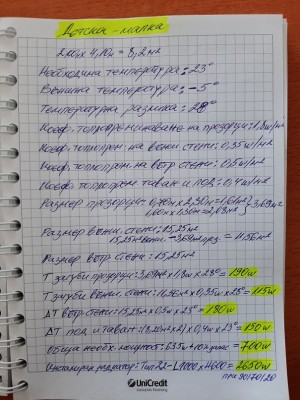 Детска - малка
2м x 4,10м = 8,2м2
Необходима температура: 23°
Външна температура: -5°
Температурна разлика: 28°
Коеф. топлопреминаване на прозорци: 1,8w/м2
Коеф. топлопрен. на външни стени: 0,35w/м2
Коеф. топлопрен на вътр стени: 0,5w/м2
Коеф топлопрен таван и под: 0,4w/м2
Размер прозорци: 0,70м x 2,30м = 1,61м2
1,60м x 1,30м = 2,08м2 } 3,69м2
Размер външ. стени: 15,25м
15,25м2 - 3,69м2 = 11,56м2
Размер вътр стени: 15,25м2
Т загуби прозорци: 3,69м2 x 1,8w x 28° = 190w
Т загуби външ. стени: 11,56м2 x 0,35w x 28° = 115w
ΔT вътр стени: 15,25м x 0,5w x 23° = 180w
ΔT под и таван: (8,20м2 x 2) x 0,4w x 23° = 150w
Обща необх. мощност: 635w + 10% = 700w
Тип 22 - L1000 x H600 = 2650w
при 90/70/20
UniCredit